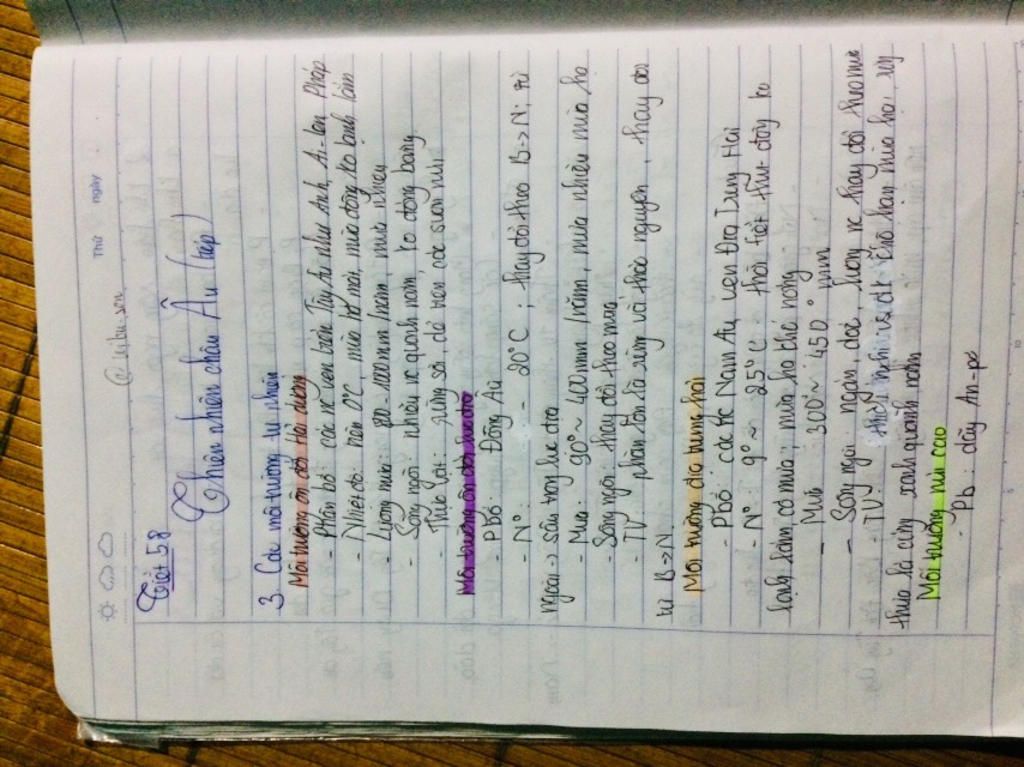 Thứ ngày
@ iu.bu.sen
Tiết 58
Thiên nhiên châu Âu (tiếp)
3. Các môi trường tự nhiên
Môi trường ôn đới Hải dương
- Phân bố: các nc ven biển Tây Âu như Anh, Ai-len Pháp
- Nhiệt độ: trên 0°C, mùa hạ mát, mùa đông ko lạnh lắm
- Lượng mưa: 800-1000mm/năm, mưa nhiều
- Sông ngòi: nhiều nc quanh năm, ko đóng băng
- Thực vật: rừng sồi, dẻ trên các sườn núi
Môi trường ôn đới lục địa
- Pbố: Đông Âu
- N°: - 20°C ; thay đổi theo B->N; từ
ngoài -> sâu trong lục địa
- Mưa: 90° ~ 400mm/năm, mưa nhiều mùa hạ
- Sông ngòi: thay đổi theo mùa
- TV: phần lớn là rừng và thảo nguyên, thay đổi
từ B->N
Môi trường địa trung hải
- Pbố: các nc Nam Âu, ven Địa Trung Hải
- N° 9° ~ 25°C: thời tiết thu-đông ko
lạnh lắm có mưa; mùa hạ thì nóng
- Mưa 300° ~ 450° mm
- Sông ngòi ngắn, dốc, lượng nc thay đổi theo mùa
- TV: thích nghi vs đk khô hạn mùa hạ, rừng
thưa lá cứng xanh quanh năm
Môi trường núi cao
- Pb: dãy An-pơ